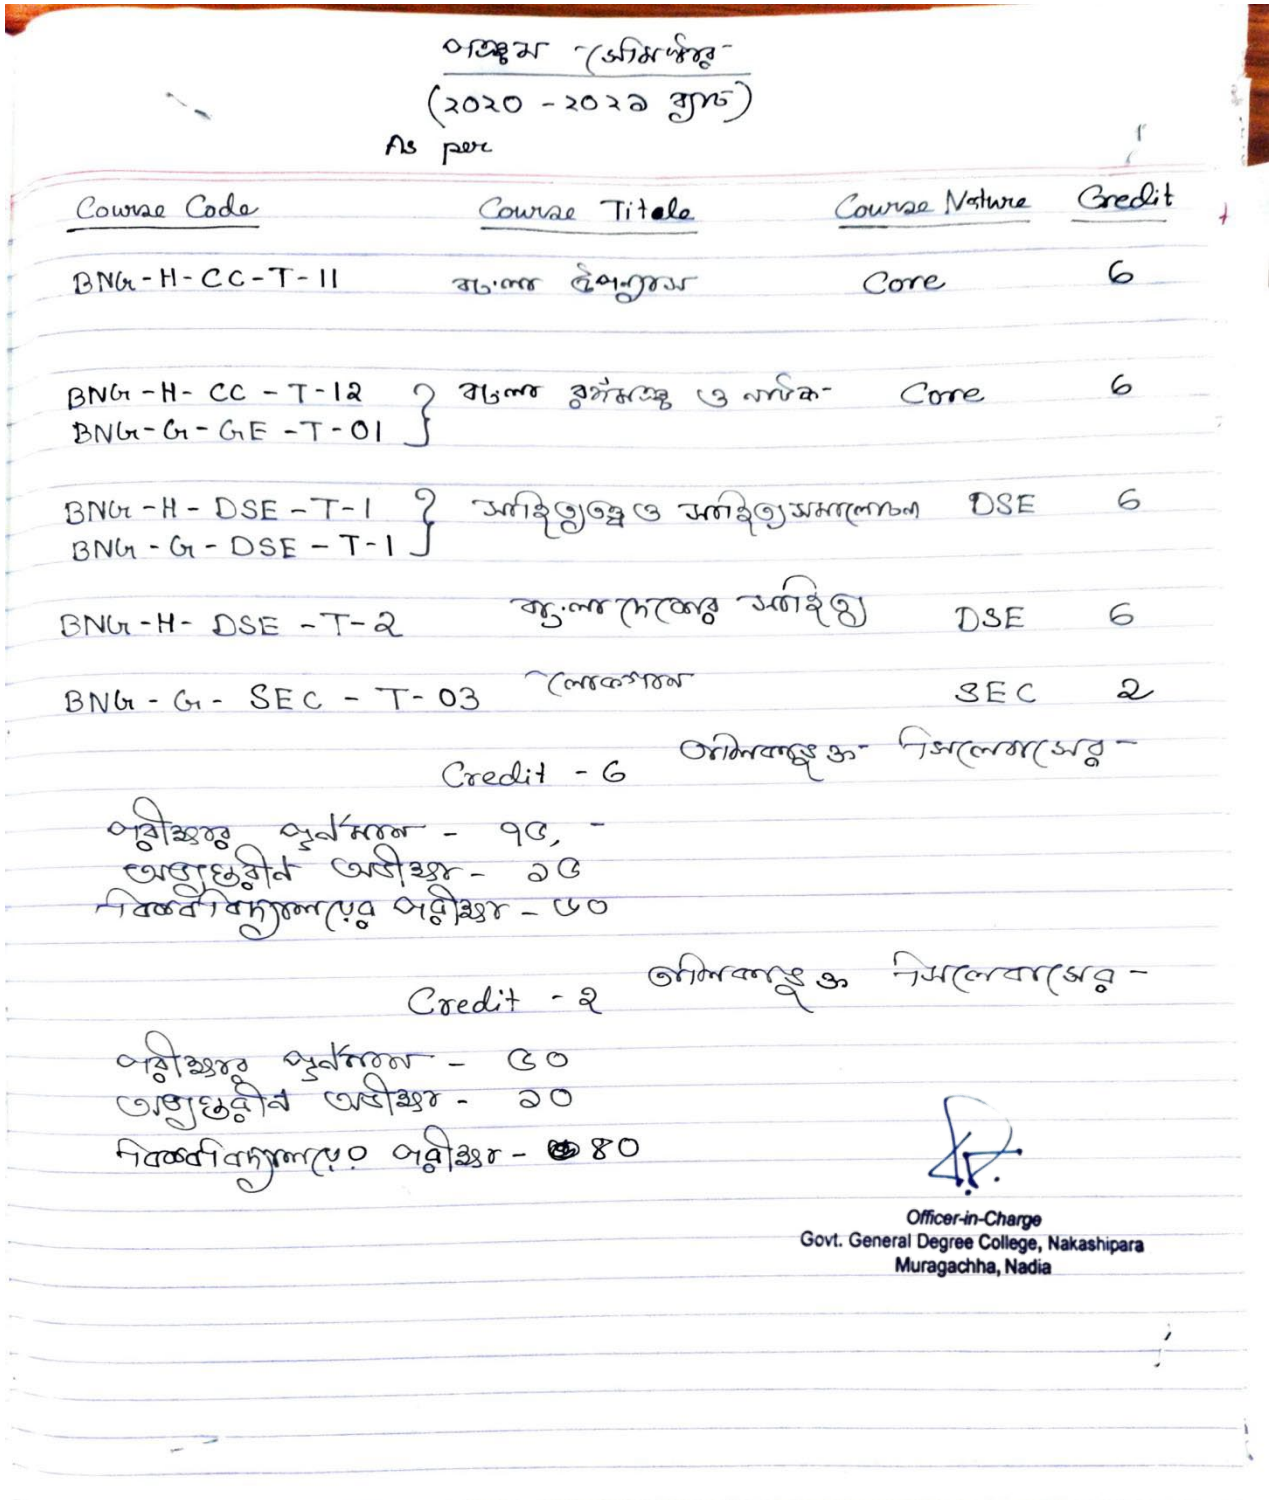 পঞ্চম সেমিস্টার
(২০২০ - ২০২১ ব্যাচ)
As per
Course Code Course Titele Course Nature Credit
BNG-H-CC-T-11 বাংলা উপন্যাস Core 6
BNG-H-CC-T-12 } বাংলা রঙ্গমঞ্চ ও নাটক- Core 6
BNG-G-GE-T-01
BNG-H-DSE-T-1 } সাহিত্যতত্ত্ব ও সাহিত্যসমালোচনা DSE 6
BNG-G-DSE-T-1
BNG-H-DSE-T-2 বাংলাদেশের সাহিত্য DSE 6
BNG-G-SEC-T-03 লোকগান SEC 2
Credit - 6 তালিকাভুক্ত সিলেবাসের -
পরীক্ষার পূর্ণমান - ৭৫, -
অভ্যন্তরীন অভীক্ষা - ১৫
বিশ্ববিদ্যালয়ের পরীক্ষা - ৬০
Credit - ২ তালিকাভুক্ত সিলেবাসের -
পরীক্ষার পূর্ণমান - ৫০
অভ্যন্তরীন অভীক্ষা - ১০
বিশ্ববিদ্যালয়ের পরীক্ষা - ৪০
Officer-in-Charge
Govt. General Degree College, Nakashipara
Muragachha, Nadia